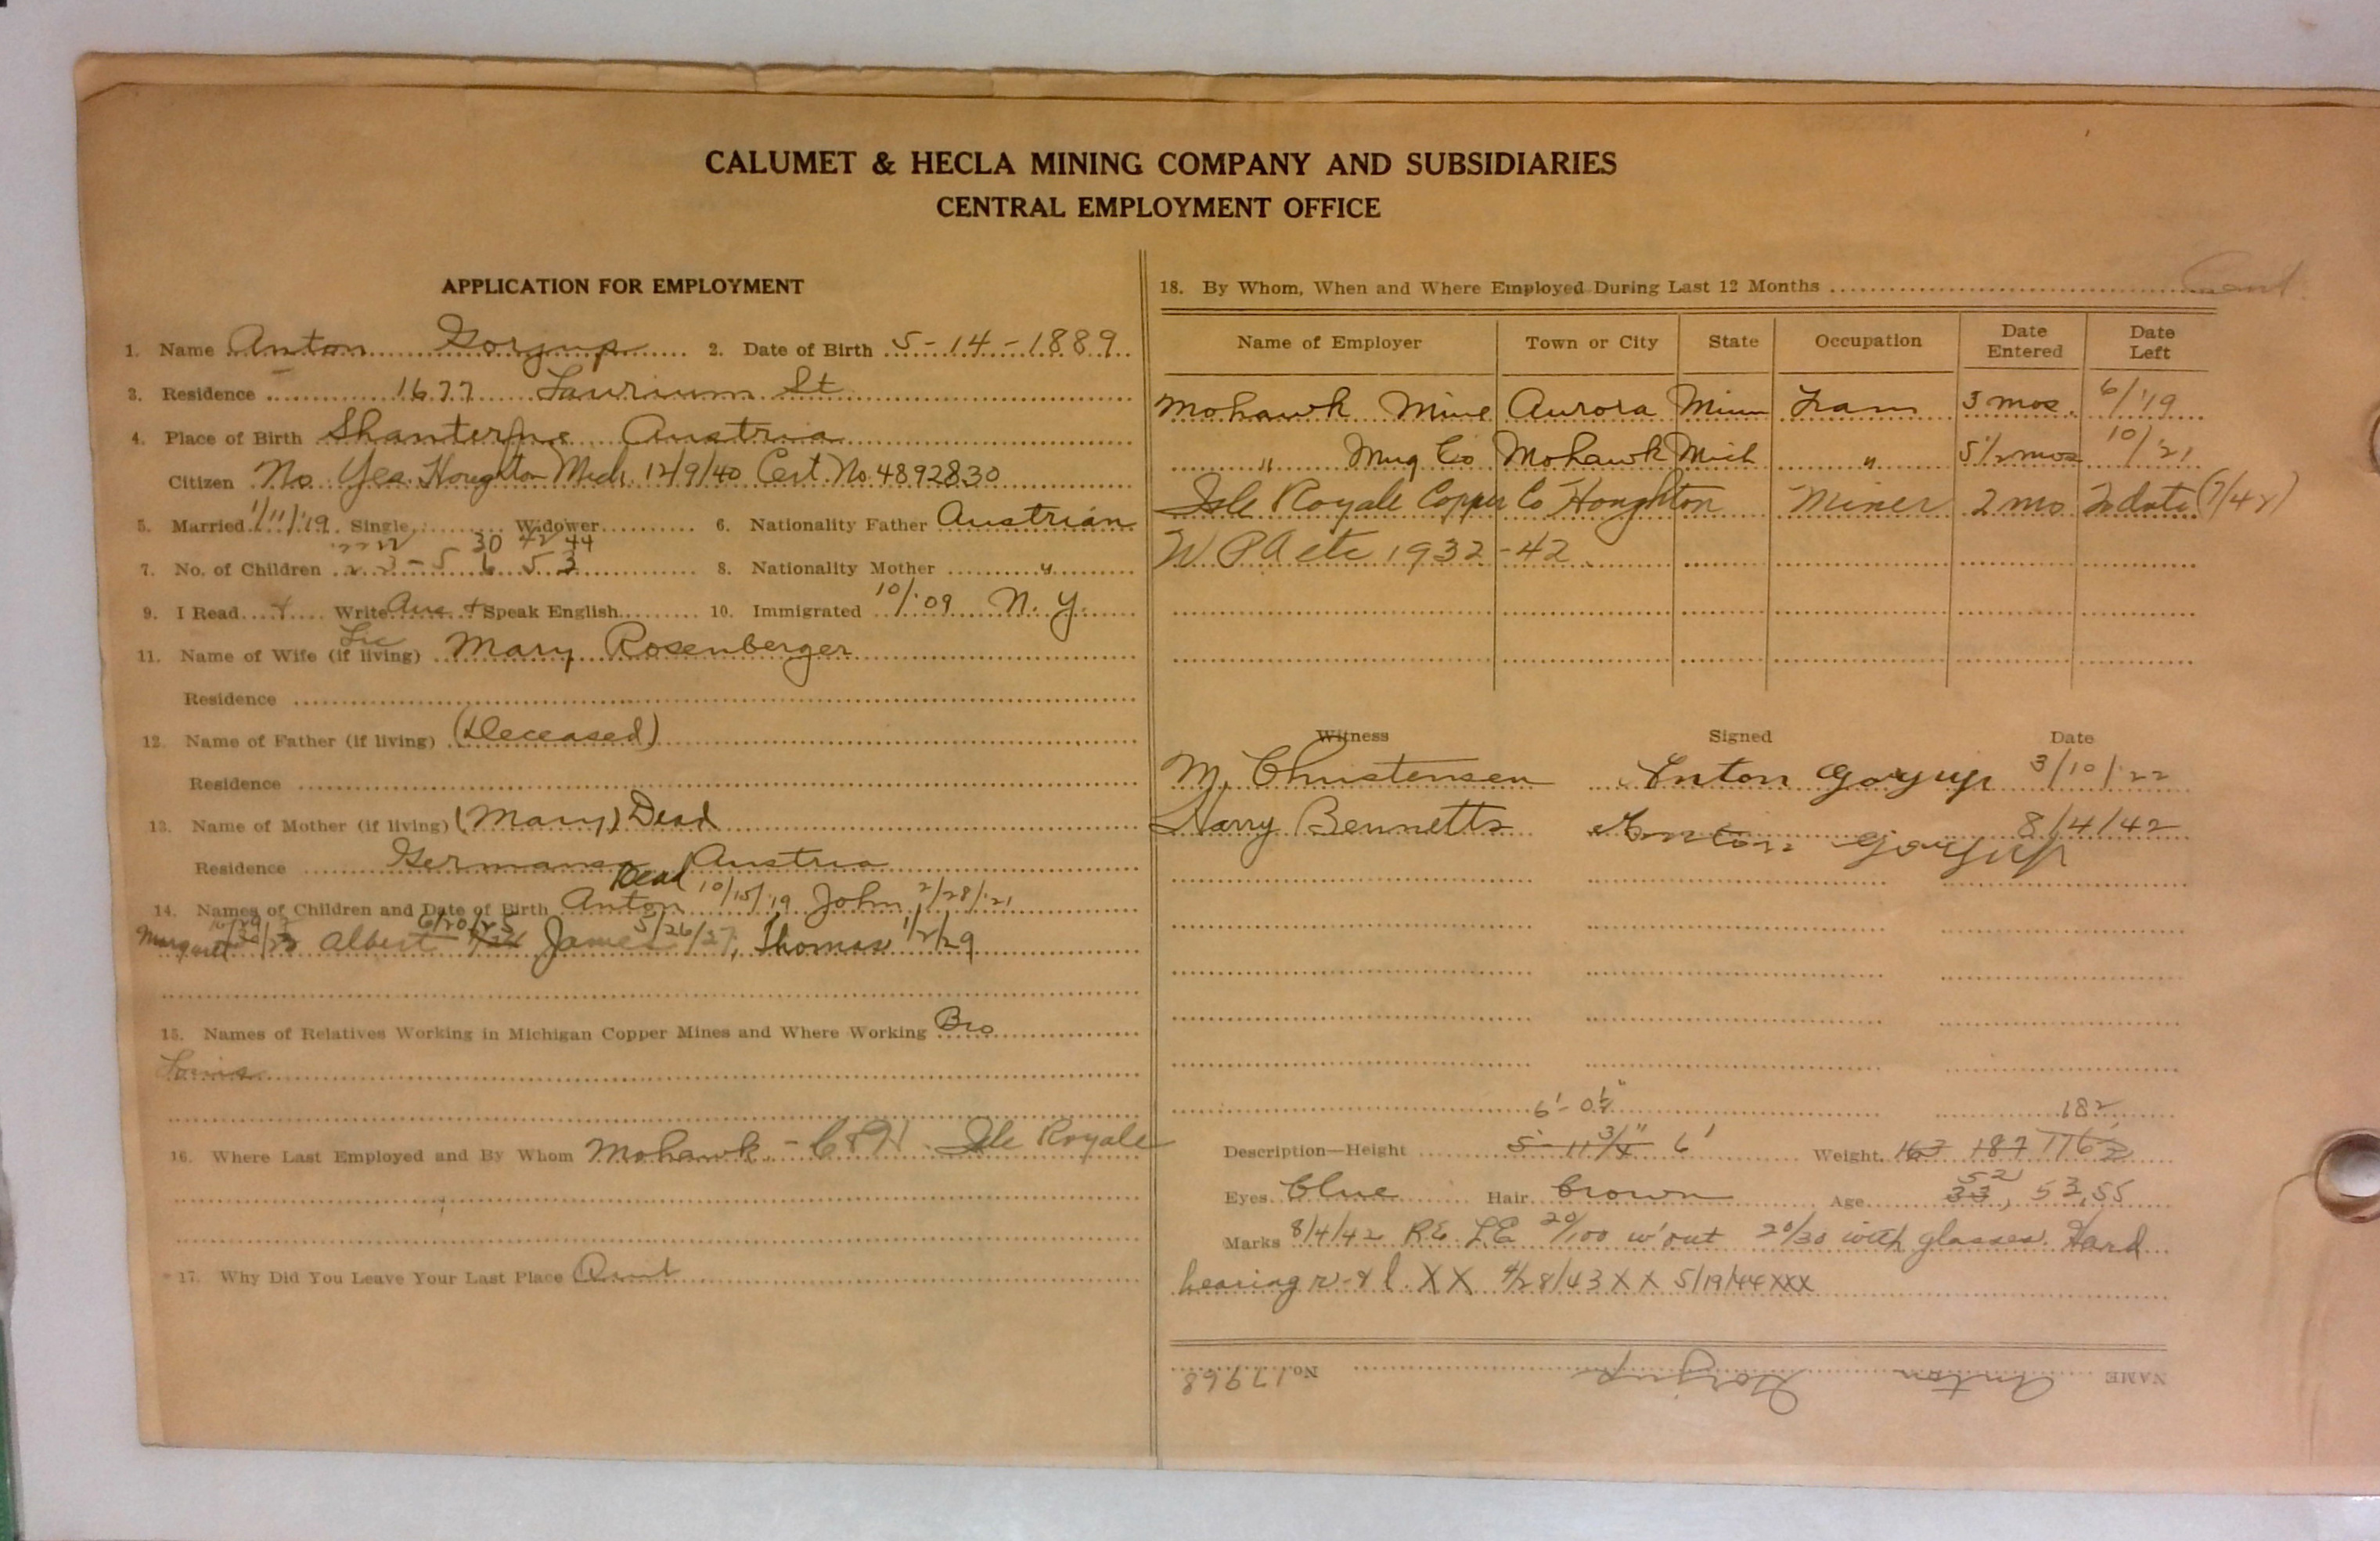 CALUMET & HECLA MINING COMPANY AND SUBSIDIARIES
CENTRAL EMPLOYMENT OFFICE
APPLICATION FOR EMPLOYMENT
1. Name Anton Gorgup 2. Date of Birth 5-14-1889
3. Residence 1677 Laurium St
4. Place of Birth Austria
Citizen No Yes Houghton Mich. 12/9/40 Cert. No. 4892830
5. Married 1/11/'19 Single Widower 6. Nationality Father Austrian
30 42 44
7. No. of Children 2 3-5 6 5 3 8. Nationality Mother "
9. I Read Write Aus + Speak English 10. Immigrated 10/'09 N.Y.
11. Name of Wife (if living) Mary Rosenberger
Residence
12. Name of Father (if living) (Deceased)
Residence
13. Name of Mother (if living) (Mary) Dead
Residence Austria
Dead
14. Names of Children and Date of Birth Anton 10/15/'19 John 2/28/'21
Margaret Albert 6/20/25 James 5/26/27, Thomas 1/2/29
15. Names of Relatives Working in Michigan Copper Mines and Where Working Bro
Louis
16. Where Last Employed and By Whom Mohawk - C&H Isle Royale
17. Why Did You Leave Your Last Place Quit
18. By Whom, When and Where Employed During Last 12 Months
Name of Employer Town or City State Occupation Date Entered Date Left
Mohawk Mine Aurora Minn Tram 3 mos. 6/'19
" Mng Co Mohawk Mich " 5 1/2 mos 10/'21
Isle Royale Copper Co Houghton Miner 2 mo To date (7/42)
W.P.A etc 1932-42
Witness Signed Date
M. Christensen Anton Gorgup 3/10/'22
Harry Bennetts Anton Gorgup 8/4/42
6'-0½" 182
Description—Height 5'-11 3/4" 6' Weight 167 187 176½
52
Eyes Blue Hair Brown Age 33, 53, 55
Marks 8/4/42 RE LE 20/100 w'out 20/30 with glasses. Hard
hearing r-& l. XX 4/28/43 XX 5/19/44 XXX
NAME Anton Gorgup No. 17968